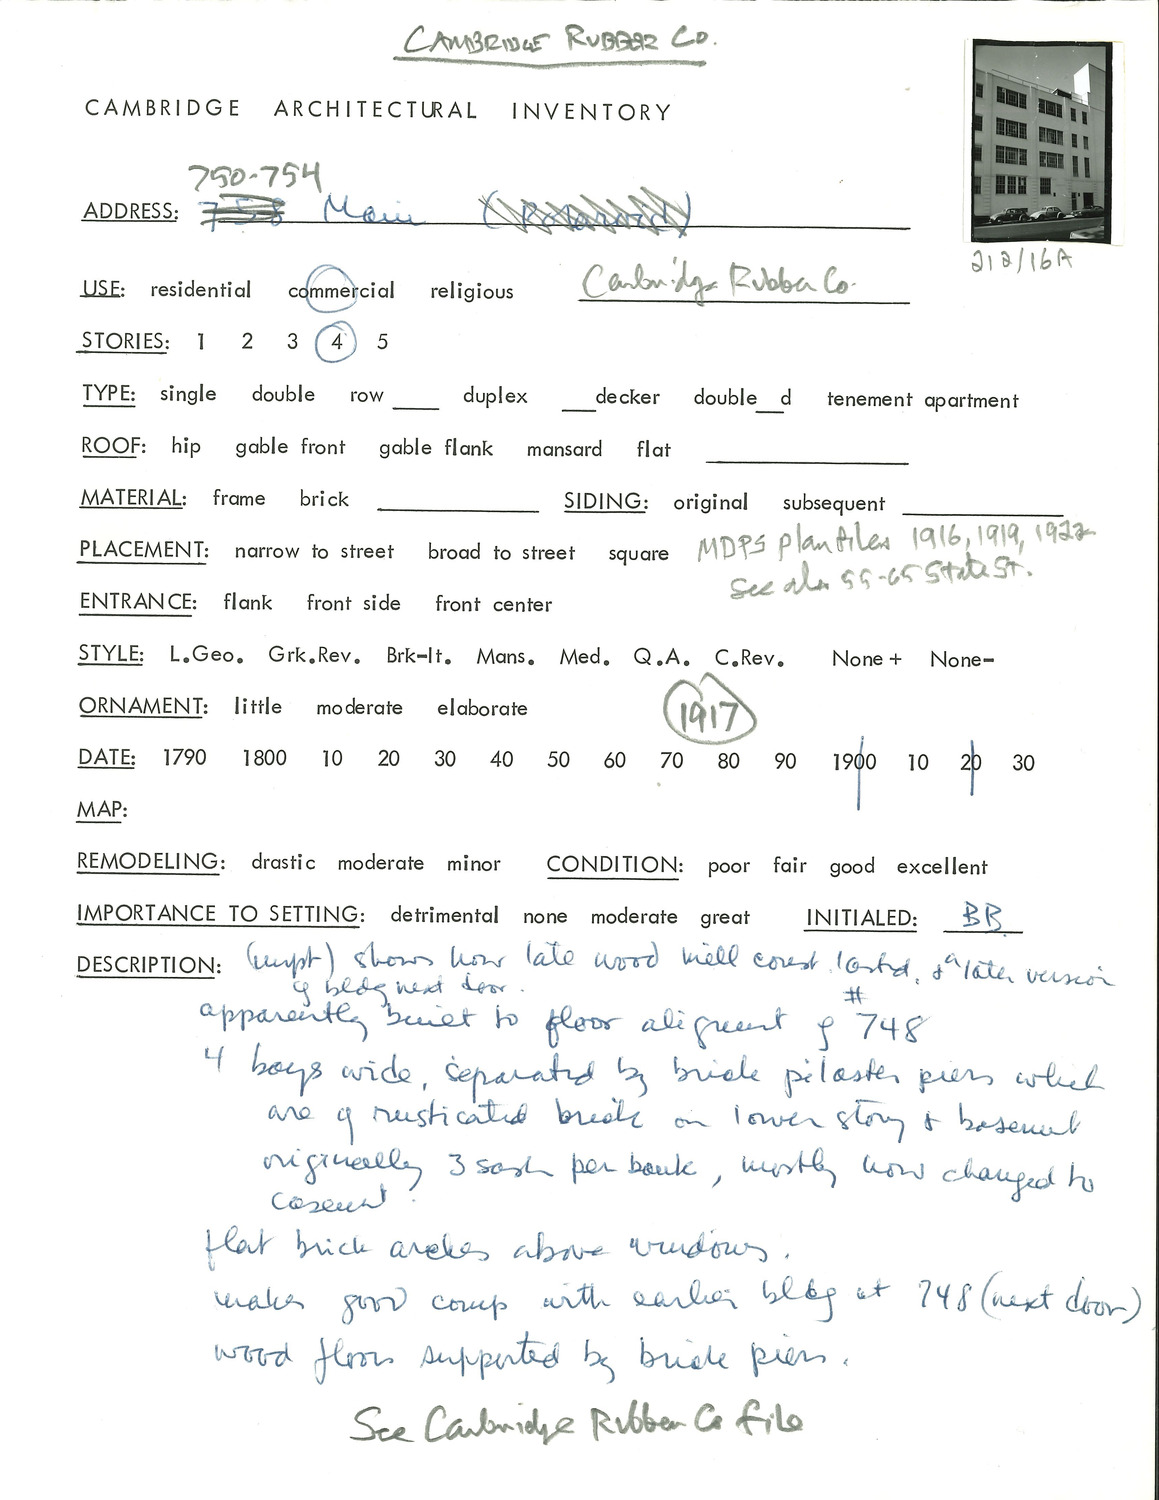 CAMBRIDGE RUBBER CO.
CAMBRIDGE ARCHITECTURAL INVENTORY
750-754
ADDRESS: 758 Main
212/16A
USE: residential commercial religious Cambridge Rubber Co.
STORIES: 1 2 3 4 5
TYPE: single double row ___ duplex ___decker double__d tenement apartment
ROOF: hip gable front gable flank mansard flat
MATERIAL: frame brick SIDING: original subsequent
PLACEMENT: narrow to street broad to street square MDPS plan files 1916, 1919, 1922
See also 55-65 State St.
ENTRANCE: flank front side front center
STYLE: L.Geo. Grk.Rev. Brk-It. Mans. Med. Q.A. C.Rev. None+ None-
ORNAMENT: little moderate elaborate 1917
DATE: 1790 1800 10 20 30 40 50 60 70 80 90 1900 10 20 30
MAP:
REMODELING: drastic moderate minor CONDITION: poor fair good excellent
IMPORTANCE TO SETTING: detrimental none moderate great INITIALED: BB
DESCRIPTION: shows how late wood mill const. lasted, & a later version
of bldg next door.
apparently built to floor alignment of # 748
4 bays wide, separated by brick pilaster piers which
are of rusticated brick on lower story & basement
originally 3 sash per bank, mostly now changed to
casement.
flat brick arches above windows.
makes good comp with earlier bldg at 748 (next door)
wood floors supported by brick piers.
See Cambridge Rubber Co file